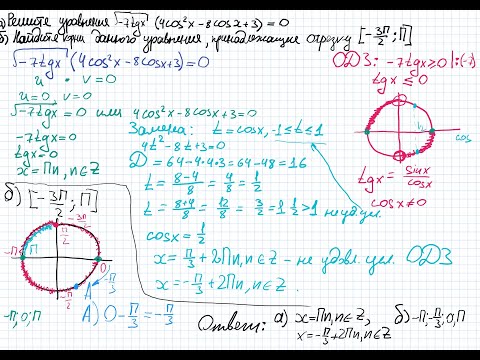 а) Решите уравнение √-7tgx (4cos²x-8cosx+3)=0
б) Найдите корни данного уравнения, принадлежащие отрезку [-3П/2; П]
√-7tgx (4cos²x-8cosx+3)=0
u · v=0
u=0, v=0
√-7tgx=0 или 4cos²x-8cosx+3=0
-7tgx=0
tgx=0
x=Пn, n∈Z
Замена: t=cosx, -1≤t≤1
4t²-8t+3=0
D=64-4·4·3=64-48=16
t=(8-4)/8=4/8=1/2
t=(8+4)/8=12/8=3/2=1 1/2>1 не удовл.
cosx=1/2
x=П/3+2Пn, n∈Z - не удовл. усл. ОДЗ
x=-П/3+2Пn, n∈Z.
ОДЗ: -7tgx≥0 |:(-7)
tgx≤0
cos
tgx=sinx/cosx
cosx≠0
б) [-3П/2; П]
-3П/2
П/2
-П
П
0
-П/3
-П/2
A
-П; 0; П
A) 0-П/3=-П/3
Ответ: а) x=Пn, n∈Z,
x=-П/3+2Пn, n∈Z
б) -П; -П/3; 0; П